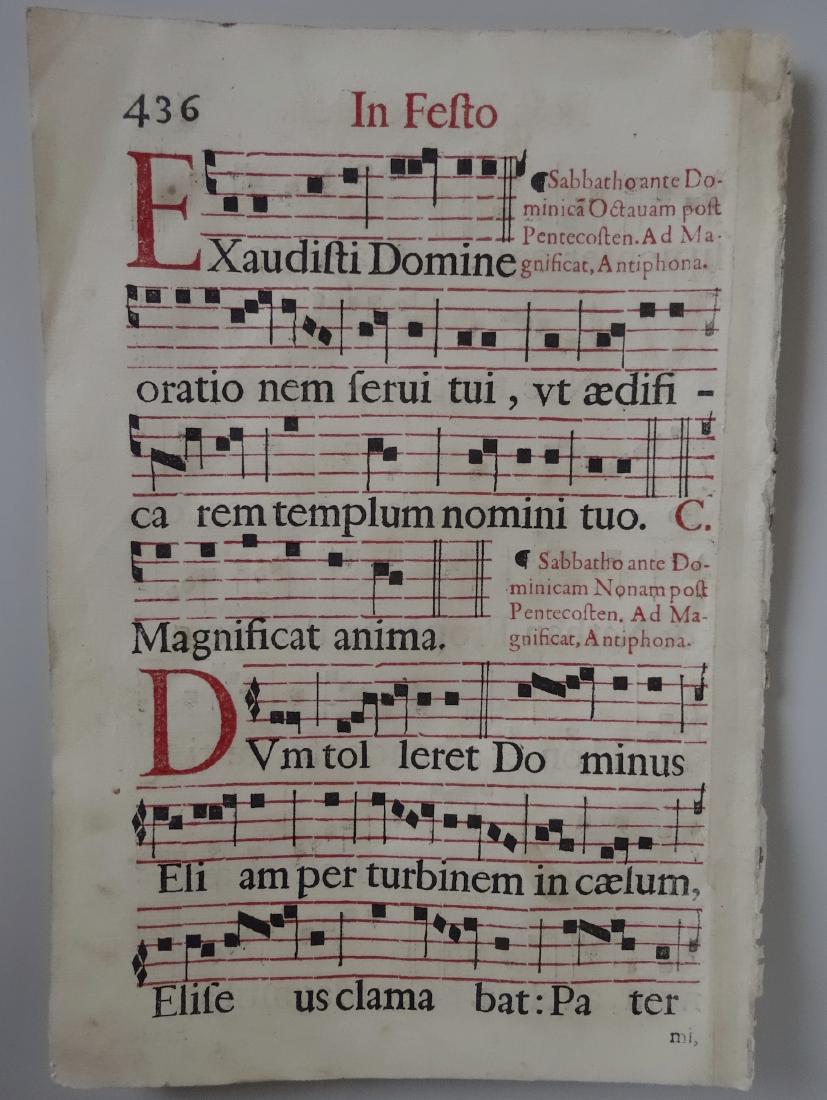 436 In Feſto
¶Sabbatho ante Do-
minicã Octauam poſt
Pentecoſten. Ad Ma-
EXaudiſti Domine gnificat, Antiphona.
oratio nem ſerui tui , vt ædifi -
ca rem templum nomini tuo. C.
¶ Sabbatho ante Do-
minicam Nonam poſt
Pentecoſten. Ad Ma-
Magnificat anima. gnificat, Antiphona.
DVm tol leret Do minus
Eli am per turbinem in cælum,
Eliſe us clama bat: Pa ter
mi,